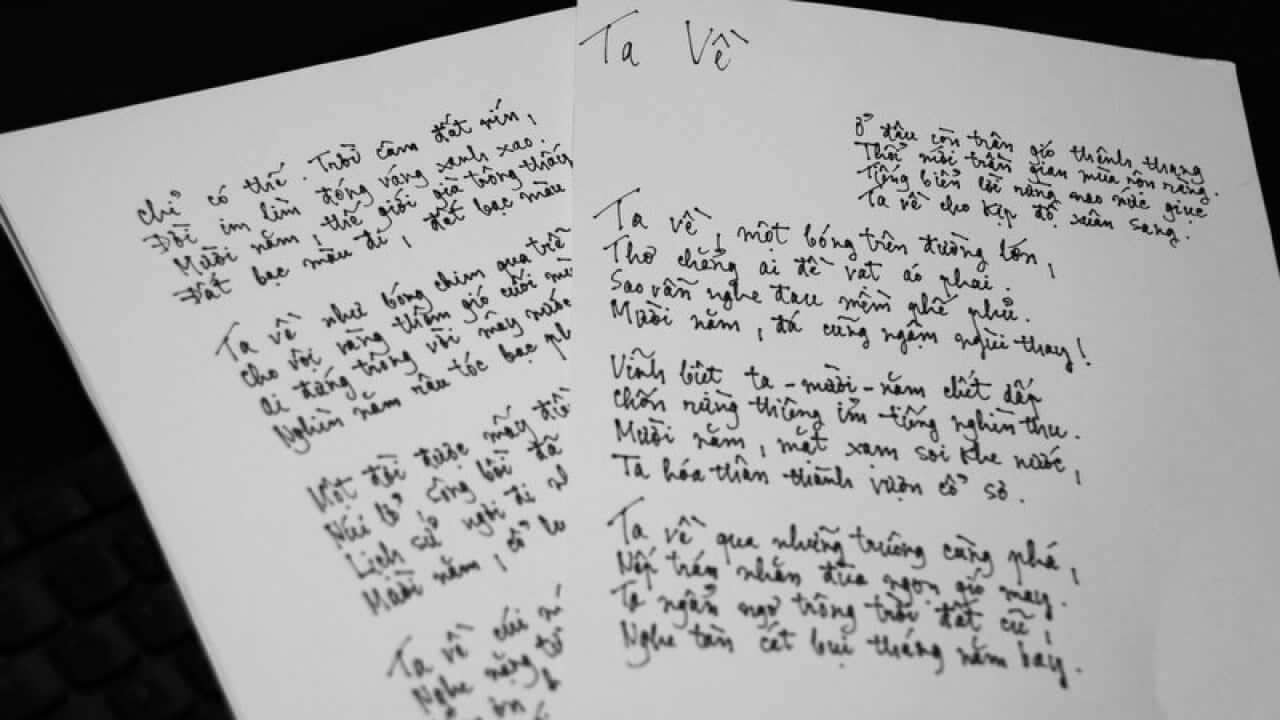 Ta Về
Ở đâu còn trận gió thênh thang
Thổi suốt trần gian mùa rộn ràng.
Tiếng biển lời rừng nao nức giục
Ta về cho kịp độ xuân sang.
Ta về, một bóng trên đường lớn,
Thơ chẳng ai đề vạt áo phai.
Sao vẫn nghe đau mềm phế phủ.
Mười năm, đá cũng ngậm ngùi thay!
Vĩnh biệt ta-mười-năm chết dấp
Chốn rừng thiêng ỉm tiếng nghìn thu.
Mười năm, mặt xạm soi khe nước,
Ta hóa thân thành vượn cổ sơ.
Ta về qua những truông cùng phá,
Nếp trán nhăn đùa ngọn gió may.
Ta ngẩn ngơ trông trời đất cũ,
Nghe tàn cát bụi tháng năm bay.
Chỉ có thế. Trời câm đất nín,
Đời im lìm đóng váng xanh xao.
Mười năm, thế giới già trông thấy
Đất bạc màu đi, đất bạc màu
Ta về như bóng chim qua trễ
Cho vội vàng thêm gió cuối
Ai đứng trông vời mây nước
Nghìn năm râu tóc bạc
Một đời được mấy
Núi lở, sông bồi đã
Lịch sử ngơi đi
Mười năm, cổ
Ta về cúi
Nghe nặng từ